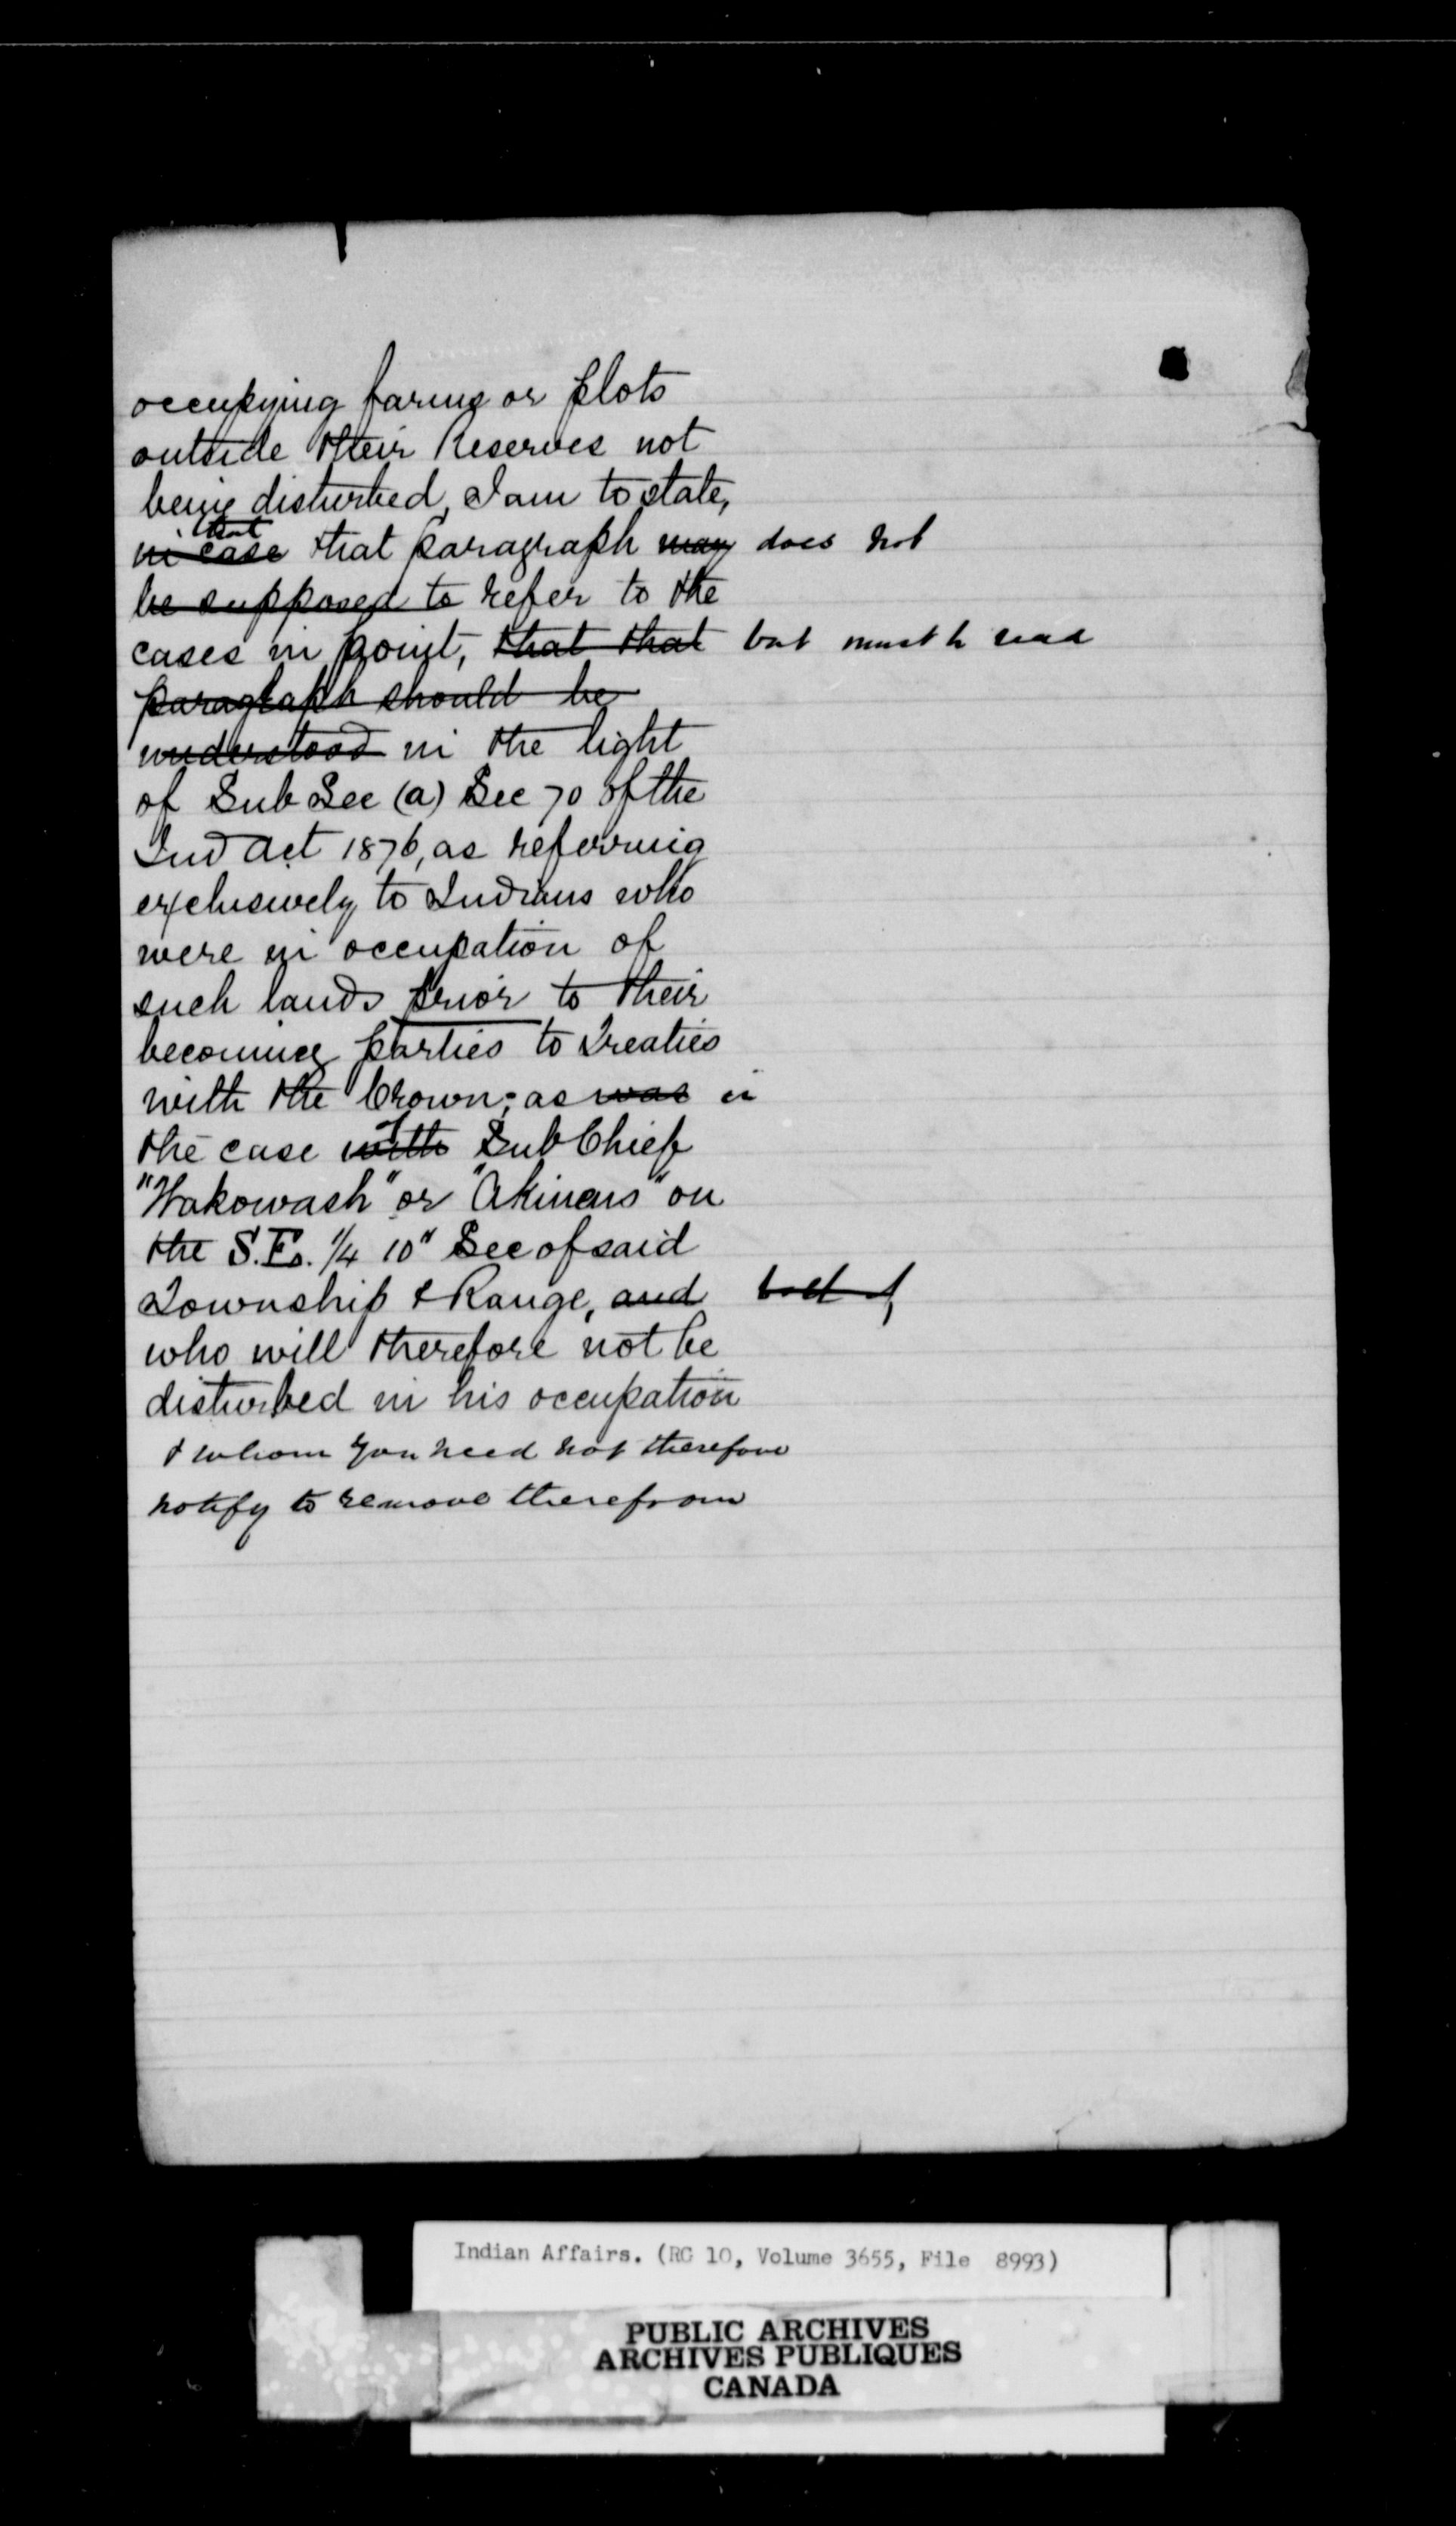 occupying farms or plots
outside their Reserves not
being disturbed, I am to state,
that
in case that paragraph may does not
be supposed to refer to the
cases in point, that that but must be read
paragraph should be
understood in the light
of Sub Sec (a) Sec 70 of the
Ind Act 1876, as referring
exclusively to Indians who
were in occupation of
such lands prior to their
becoming parties to Treaties
with the Crown; as was in
of
the case with Sub Chief
"Wakowash" or "Akinens" on
the S.E. 1/4 10" Sec of said
Township & Range, and
who will therefore not be
disturbed in his occupation
& whom you need not therefore
notify to remove therefrom
Indian Affairs. (RG 10, Volume 3655, File 8993)
PUBLIC ARCHIVES
ARCHIVES PUBLIQUES
CANADA